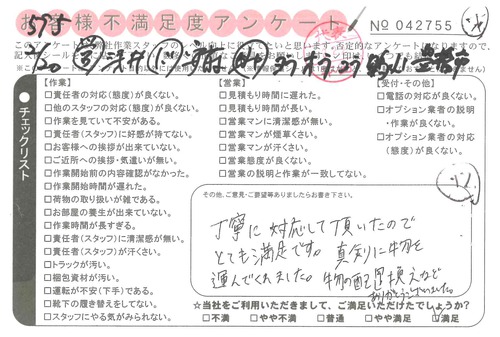 お客様不満足度アンケート
No 042755
【作業】
□責任者の対応(態度)が良くない。
□他のスタッフの対応(態度)が良くない。
□作業を見ていて不安がある。
□責任者(スタッフ)に好感が持てない。
□お客様への挨拶が出来ていない。
□ご近所への挨拶・気遣いが無い。
□作業開始前の内容確認がなかった。
□作業開始時間が遅れた。
□荷物の取り扱いが雑である。
□お部屋の養生が出来ていない。
□作業時間が長すぎる。
□責任者(スタッフ)に清潔感が無い。
□責任者(スタッフ)が汗くさい。
□トラックが汚い。
□梱包資材が汚い。
□運転が不安(下手)である。
□靴下の履き替えをしてない。
□スタッフにやる気がみられない。
【営業】
□見積もり時間に遅れた。
□見積もり時間が長い。
□営業マンに清潔感が無い。
□営業マンが煙草くさい。
□営業マンが汗くさい。
□営業態度が良くない。
□営業の説明と作業が一致してない。
【受付・その他】
□電話の対応が良くない。
□オプション業者の説明
・作業が良くない。
□オプション業者の対応
(態度)が良くない。
チェックリスト
その他、ご意見・ご要望等ありましたらお書き下さい。
丁寧に対応して頂いたので
とても満足です。真剣に物を
運んでくれました。物の配置換えなど
ありがとうございました。
☆当社をご利用いただきまして、ご満足いただけたでしょうか?
□不満 □やや不満 □普通 □やや満足 □満足